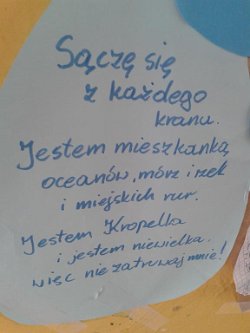 Sączę się
z każdego
kranu.
Jestem mieszkanką
oceanów, mórz i rzek
i miejskich rur.
Jestem Kropelka
i jestem niewielka.
więc nie zatruwaj mnie!